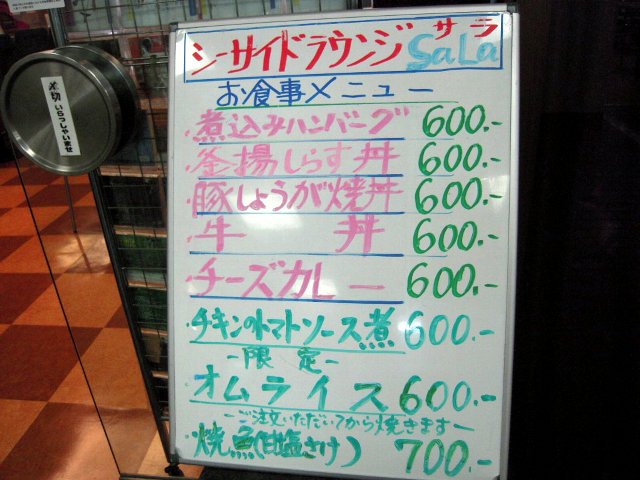 サラ
シーサイドラウンジ SaLa
お食事メニュー
煮込みハンバーグ 600.-
釜揚しらす丼 600.-
豚しょうが焼丼 600.-
牛丼 600.-
チーズカレー 600.-
チキンのトマトソース煮 600.-
-限定-
オムライス 600.-
~ご注文いただいてから焼きます~
焼魚(甘塩さけ) 700.-
いらっしゃいませ